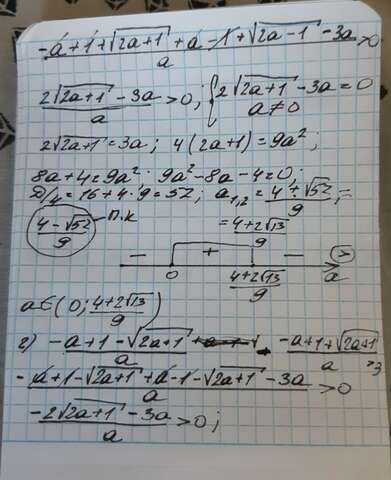 (-a+1+√(2a+1)+a-1+√(2a-1)-3a)/a >0
(2√(2a+1)-3a)/a >0; {2√(2a+1)-3a=0
a≠0
2√(2a+1)=3a; 4(2a+1)=9a²;
8a+4=9a²; 9a²-8a-4=0;
D/4=16+4·9=52; a₁,₂=(4±√52)/9=
(4-√52)/9 - п.к =(4+2√13)/9
- + - >
0 (4+2√13)/9 a
a∈(0;(4+2√13)/9)
2) (-a+1-√(2a+1))/a - (-a+1+√(2a+1))/a >3
(-a+1-√(2a+1)+a-1-√(2a+1)-3a)/a >0
(-2√(2a+1)-3a)/a >0;